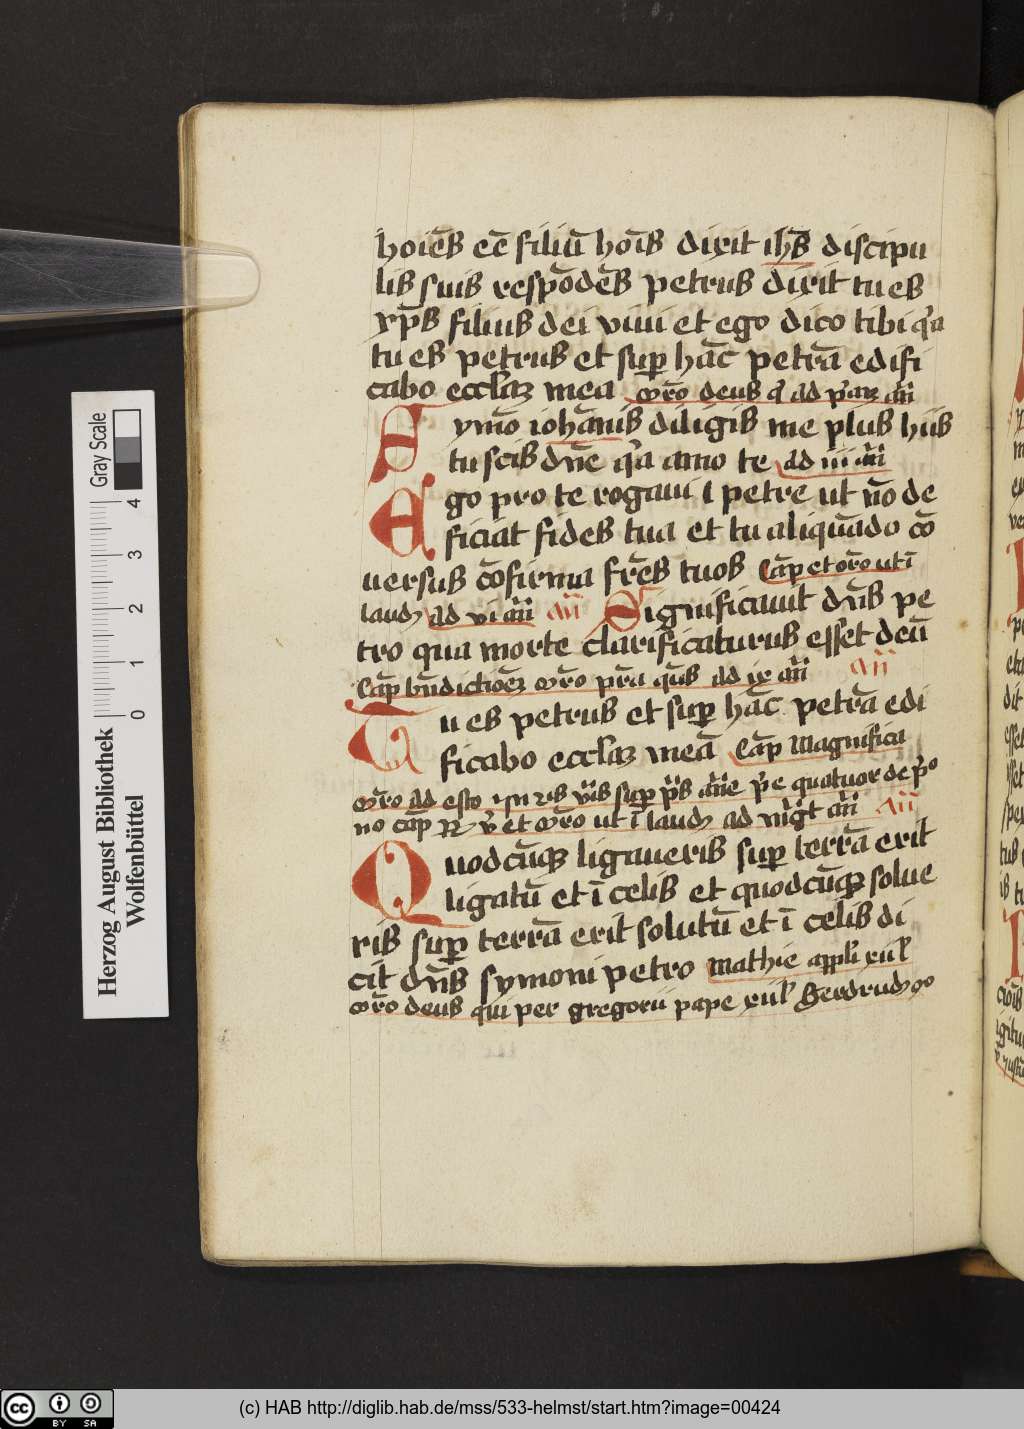 hoiēs eē filiū hoīs dixit ihs̄ discipu
lis suis respōdēs petrus dixit tu es
xp̄s filius dei viui et ego dico tibi q̄a
tu es petrus et sup hāc petrā edifi
cabo eccl'az mea or̄o deus q ad p̄az an̄
Symō iohānis diligis me plus hiis
tu scis dn̄e q̄a amo te ad iii an̄
Ego pro te rogaui petre ut nō de
ficiāt fides tua et tu aliquādo cō
uersus cōfirma fr̄es tuos Cap̄ et or̄o ut ī
laud ad vi an̄ an̄ Significauit dn̄s pe
tro qua morte clarificaturus esset deū
Cap̄ bn̄dictioēz or̄o pr̄a ad ix an̄ an̄
Tu es petrus et sup hāc petrā edi
ficabo eccl'az meā Cap̄ Magnificat
or̄o ad
no cap̄ et or̄o ut ī laud ad an̄ an̄
Quodcūqz ligaueris sup terrā erit
ligatū et ī celis et quodcūqz solue
ris sup terrā erit solutū et ī celis di
cit dn̄s symoni petro mathie appl'i xiil'
or̄o deus qui per gregorii pape xiil' Gerdrud
Herzog August Bibliothek
Wolfenbüttel
0 1 2 3 4
Gray Scale
cc BY SA
(c) HAB http://diglib.hab.de/mss/533-helmst/start.htm?image=00424